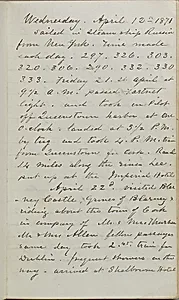 Wednesday, April 12th 1871
Sailed in Steam ship Russia
from New York. Time made
each day. 297, 326, 303,
320. 300. 290. 332. 330
333. Friday 21st April at
9½ a.m. passed Fastnet
light, and took on Pilot
off Queenstown harbor at one
O'clock. landed at 3½ P.M.
by tug and took 4. P.M. train
from Queenstown to Cork. Rained
12 miles along the river Lee.
put up at the Imperial Hotel
April 22d. visited Blar-
ney Castle, Groves of Blarney &
riding about the town of Cork
in company of Mr & Mrs
Mr & Mrs Allen fellow passengers
same day took 2. train for
Dublin. frequent showers on the
way - arrived at Shelbourn Hotel